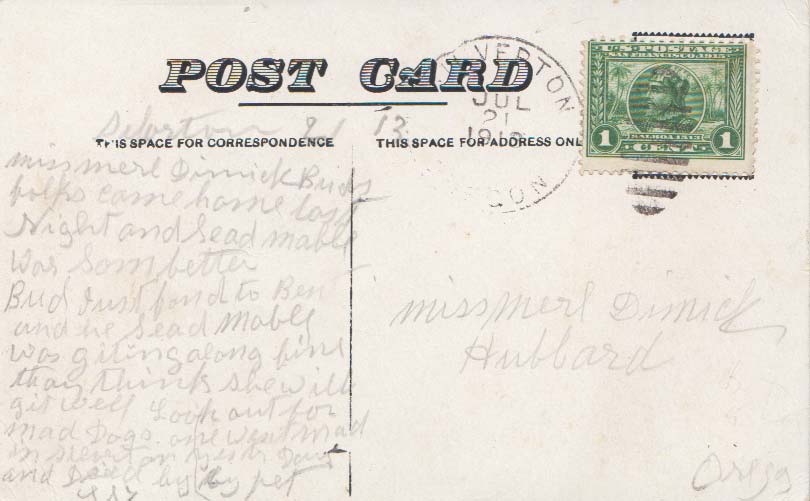 POST CARD
SILVERTON
JUL
21
1913
OREGON
U.S. POSTAGE
SAN FRANCISCO 1915
BALBOA 1513
1 CENT 1
21 13
THIS SPACE FOR CORRESPONDENCE
THIS SPACE FOR ADDRESS ONL
miss merl Dimick Buds
folks came home last
Night and Sead mable
was Som better
Bud Just fond to Ben
and he Sead Mable
was giting along fine
thay think she will
git well Look out for
mad Dogs one went mad
in silverton yesterday
and by
miss merl Dimick
Hubbard
Oregon